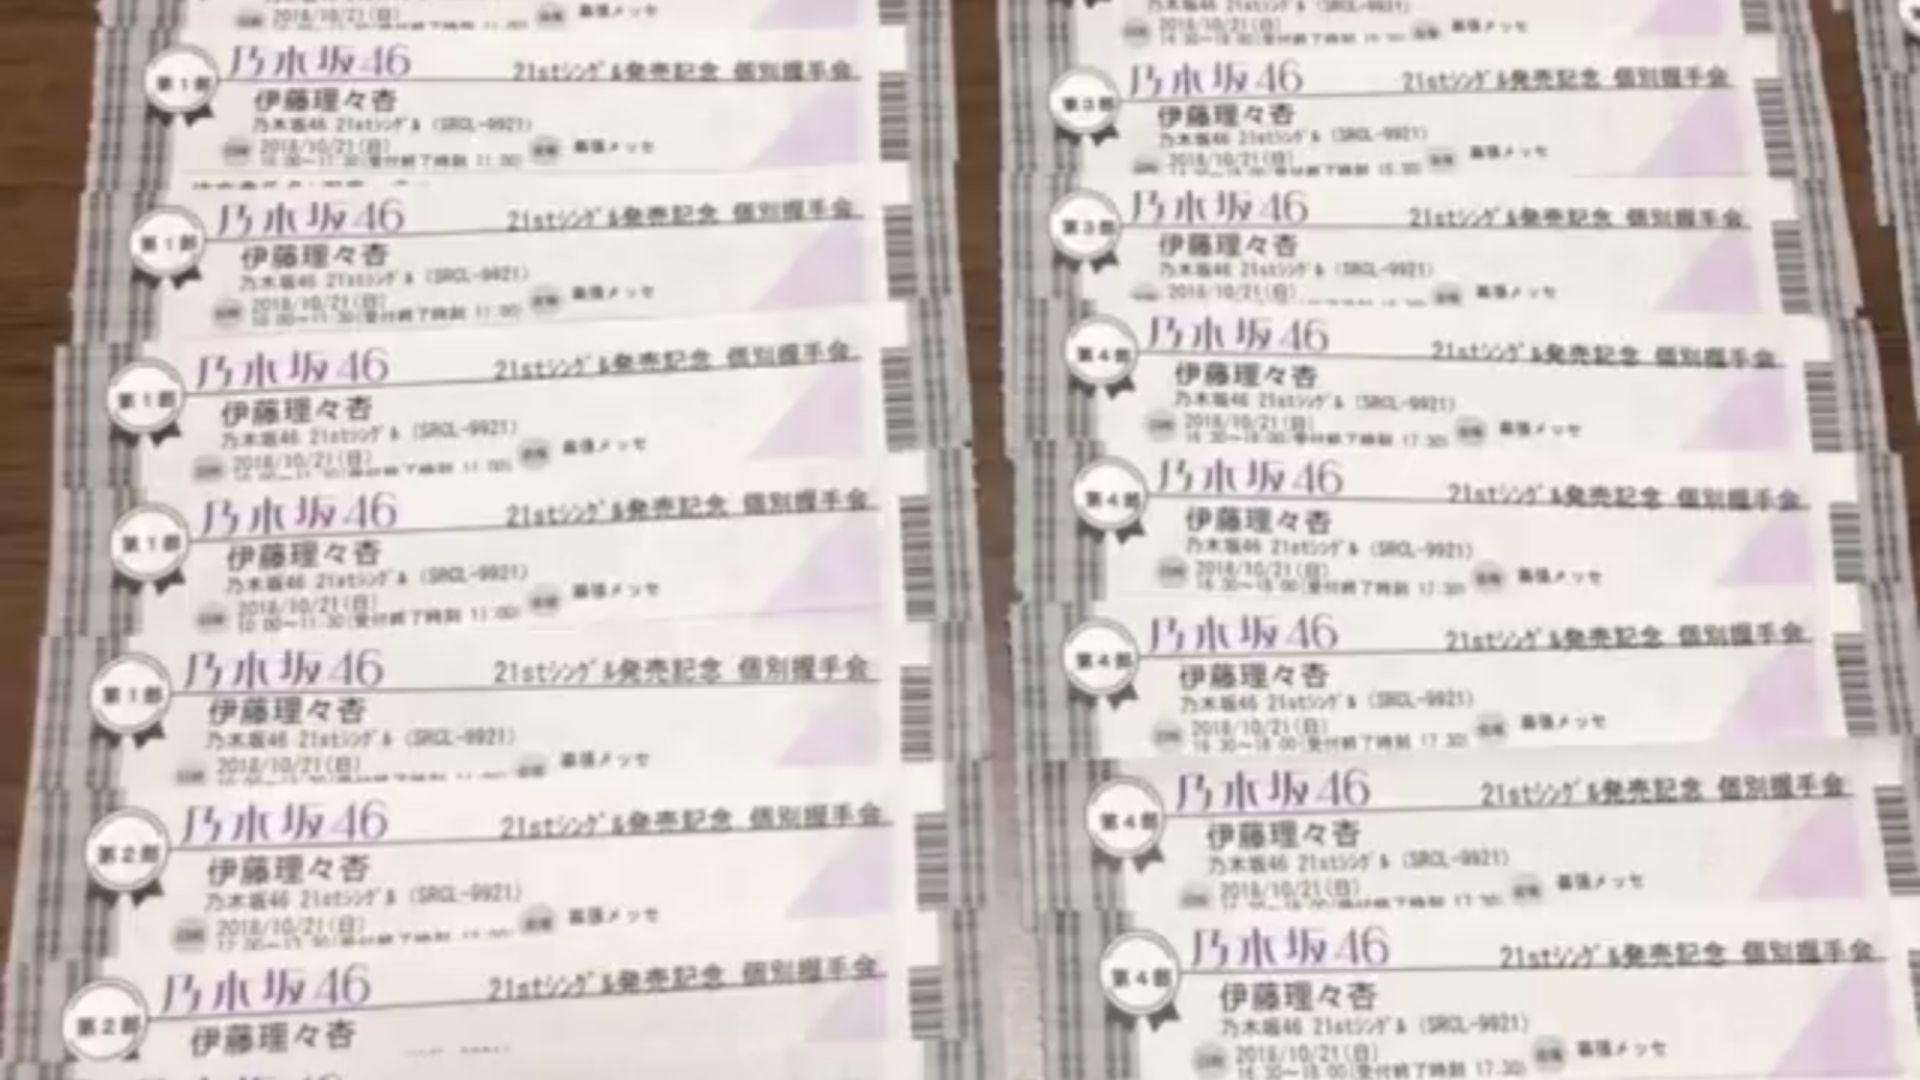 2018/10/21(日) 幕張メッセ
第1部 乃木坂46 21stシングル発売記念 個別握手会
伊藤理々杏
乃木坂46 21stシングル (SRCL-9921)
2018/10/21(日) 幕張メッセ
10:00〜11:30(受付終了時刻 11:00)
第1部 乃木坂46 21stシングル発売記念 個別握手会
伊藤理々杏
乃木坂46 21stシングル (SRCL-9921)
2018/10/21(日) 幕張メッセ
10:00〜11:30(受付終了時刻 11:00)
第1部 乃木坂46 21stシングル発売記念 個別握手会
伊藤理々杏
乃木坂46 21stシングル (SRCL-9921)
2018/10/21(日) 幕張メッセ
10:00〜11:30(受付終了時刻 11:00)
第1部 乃木坂46 21stシングル発売記念 個別握手会
伊藤理々杏
乃木坂46 21stシングル (SRCL-9921)
2018/10/21(日) 幕張メッセ
10:00〜11:30(受付終了時刻 11:00)
第1部 乃木坂46 21stシングル発売記念 個別握手会
伊藤理々杏
乃木坂46 21stシングル (SRCL-9921)
2018/10/21(日) 幕張メッセ
第2部 乃木坂46 21stシングル発売記念 個別握手会
伊藤理々杏
乃木坂46 21stシングル (SRCL-9921)
2018/10/21(日) 幕張メッセ
第2部 乃木坂46 21stシングル発売記念 個別握手会
伊藤理々杏
乃木坂46 21stシングル (SRCL-9921)
2018/10/21(日) 幕張メッセ
第3部 乃木坂46 21stシングル発売記念 個別握手会
伊藤理々杏
乃木坂46 21stシングル (SRCL-9921)
2018/10/21(日) 幕張メッセ
第3部 乃木坂46 21stシングル発売記念 個別握手会
伊藤理々杏
乃木坂46 21stシングル (SRCL-9921)
2018/10/21(日) 幕張メッセ
第4部 乃木坂46 21stシングル発売記念 個別握手会
伊藤理々杏
乃木坂46 21stシングル (SRCL-9921)
2018/10/21(日) 幕張メッセ
16:30〜18:00(受付終了時刻 17:30)
第4部 乃木坂46 21stシングル発売記念 個別握手会
伊藤理々杏
乃木坂46 21stシングル (SRCL-9921)
2018/10/21(日) 幕張メッセ
16:30〜18:00(受付終了時刻 17:30)
第4部 乃木坂46 21stシングル発売記念 個別握手会
伊藤理々杏
乃木坂46 21stシングル (SRCL-9921)
2018/10/21(日) 幕張メッセ
16:30〜18:00(受付終了時刻 17:30)
第4部 乃木坂46 21stシングル発売記念 個別握手会
伊藤理々杏
乃木坂46 21stシングル (SRCL-9921)
2018/10/21(日) 幕張メッセ
16:30〜18:00(受付終了時刻 17:30)
第4部 乃木坂46 21stシングル発売記念 個別握手会
伊藤理々杏
乃木坂46 21stシングル (SRCL-9921)
2018/10/21(日) 幕張メッセ
16:30〜18:00(受付終了時刻 17:30)